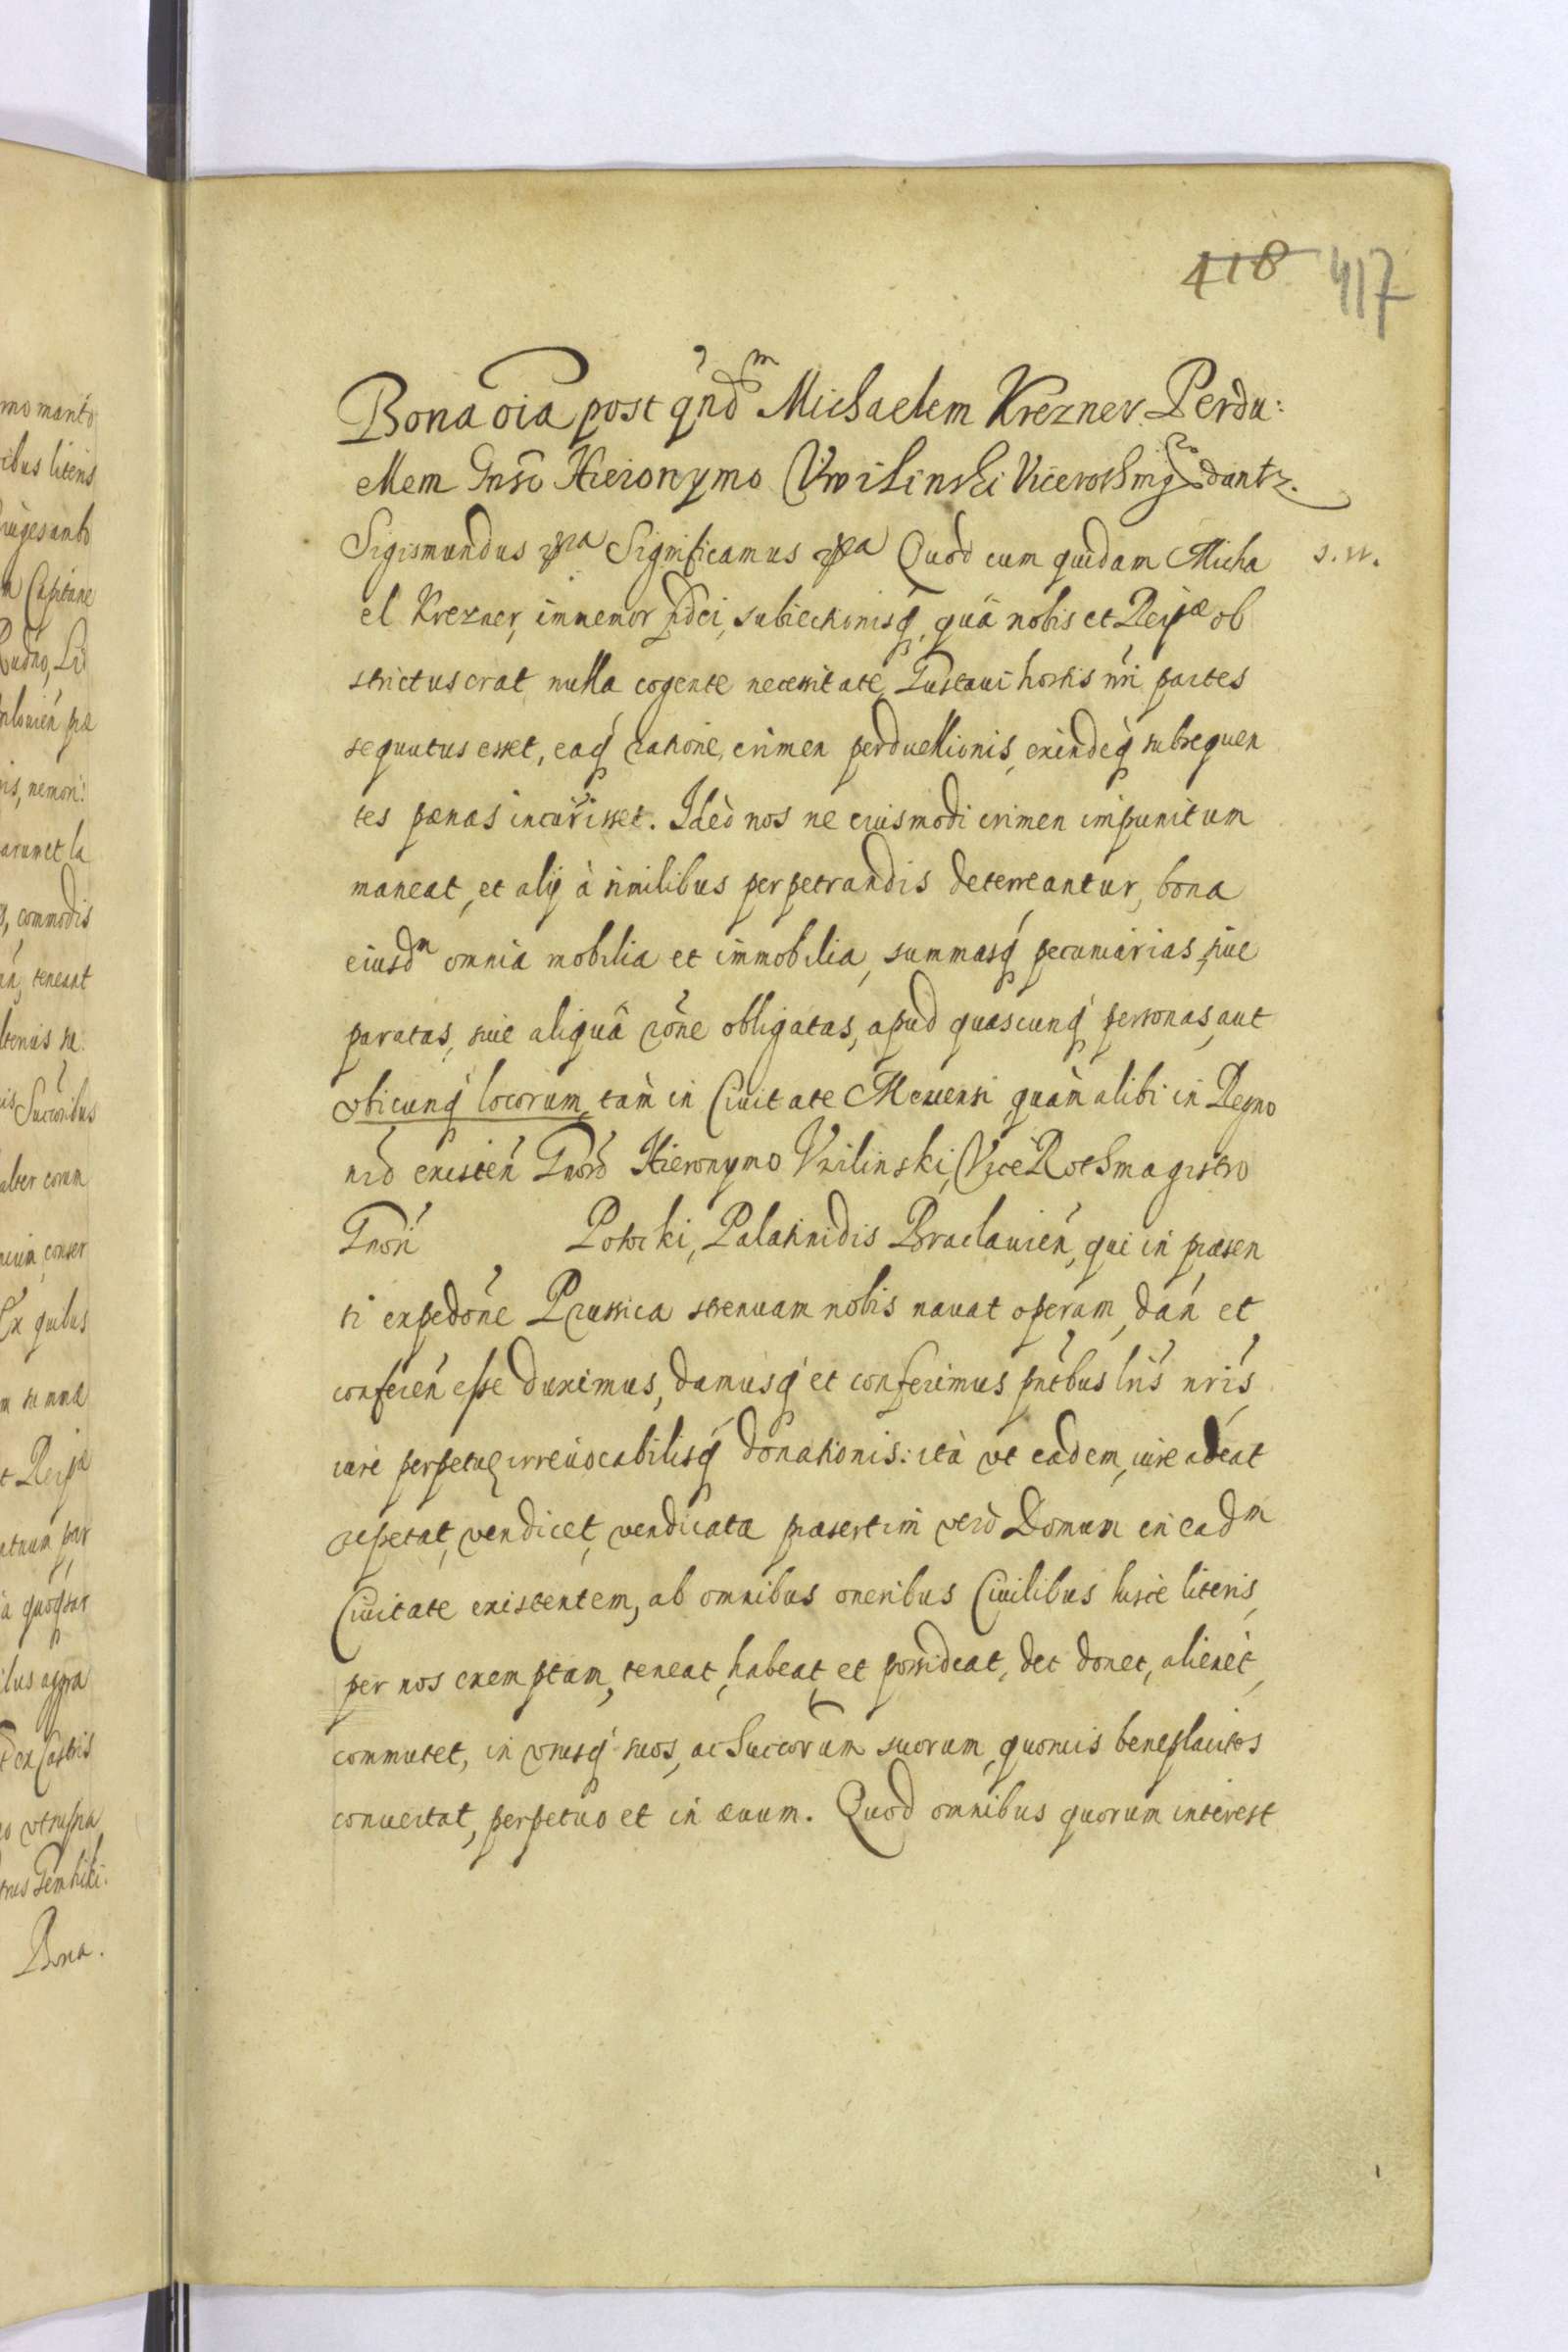 418 417
Bona oia post qnd^m Michaelem Krezner Perdu:
ellem Gnso Hieronymo Uwilinski Vicerothmg^ro dantz.
Sigismundus etca Significamus etca Quod cum quidam Micha s.n.
el Krezner, immemor fidei, subiectionisq, quâ nobis et Reipcæ ob
strictus erat nulla cogente necessitate, Gustaui hostis nri partes
sequutus esset, eaq ratione, crimen perduellionis, exindeq subsequen
tes pœnas incurrisset. Ideò nos ne eiusmodi crimen impunitum
maneat, et alij à similibus perpetrandis deterreantur, bona
eiusd^m omnia mobilia et immobilia, summasq pecuniarias, siue
paratas, siue aliquâ rõne obligatas, apud quascunq personas, aut
vbicunq locorum, tàm in Ciuitate Meuensi quàm alibi in Regno
nro existeñ Gnoso Hieronymo Vzilinski, Vice Rothmagistro
Gnosi Potocki, Palatinidis Braclauieñ, qui in præsen
ti expedõne Prussica strenuam nobis nauat operam, dañ et
confereñ esse duximus, damusq et conferimus pntibus lris nris,
iure perpetuæ irreuocabilisq donationis: ità vt eadem, iure adeat
repetat, vendicet, vendicata præsertim verò Domum in ead^m
Ciuitate existentem, ab omnibus oneribus Ciuilibus hisce literis,
per nos exemptam, teneat, habeat, et possideat, det donet, alienet,
commutet, in vsusq suos, ac Succorum suorum, quouis beneplacitos
conuertat, perpetuo et in æuum. Quod omnibus quorum interest
mo manto
ibus literis
commodis
teneant
Succoribus
conser
Ex quibus
Castris
Bona.